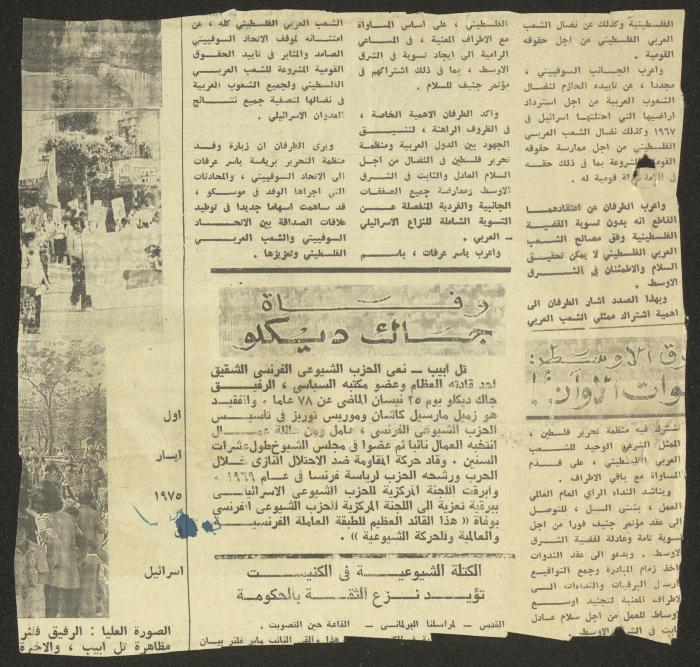 الفلسطينية وكذلك عن نضال الشعب
العربي الفلسطيني من اجل حقوقه
القومية .
واعرب الجانب السوفييتي ،
مجددا ، عن تأييده الحازم لنضال
الشعوب العربية من اجل استرداد
اراضيها التي احتلتها اسرائيل في
١٩٦٧ وكذلك نضال الشعب العربي
الفلسطيني من اجل ممارسة حقوقه
القومية المشروعة بما في ذلك حقه
في اقامة دولة قومية له .
واعرب الطرفان عن اعتقادهما
القاطع انه بدون تسوية القضية
الفلسطينية وفق مصالح الشعب
العربي الفلسطيني لا يمكن تحقيق
السلام والاطمئنان في الشرق
الاوسط .
وبهذا الصدد اشار الطرفان الى
اهمية اشتراك ممثلي الشعب العربي
الفلسطيني ، على اساس المساواة
مع الاطراف المعنية ، في المساعي
الرامية الى ايجاد تسوية في الشرق
الاوسط ، بما في ذلك اشتراكهم في
مؤتمر جنيف للسلام .
واكد الطرفان الاهمية الخاصة ،
في الظروف الراهنة ، لتنسيق
الجهود بين الدول العربية ومنظمة
تحرير فلسطين في النضال من اجل
السلام العادل والثابت في الشرق
الاوسط ومعارضة جميع الصفقات
الجانبية والفردية المنفصلة عن
التسوية الشاملة للنزاع الاسرائيلي
ـ العربي .
واعرب ياسر عرفات ، باسم
الشعب العربي الفلسطيني كله ، عن
امتنانه لموقف الاتحاد السوفييتي
الصامد والمثابر في تأييد الحقوق
القومية المشروعة للشعب العربي
الفلسطيني ولجميع الشعوب العربية
في نضالها لتصفية جميع نتائج
العدوان الاسرائيلي .
ويرى الطرفان ان زيارة وفد
منظمة التحرير برياسة ياسر عرفات
الى الاتحاد السوفييتي ، والمحادثات
التي اجراها الوفد في موسكو ،
قد ساهمت اسهاما جديدا في توطيد
علاقات الصداقة بين الاتحاد
السوفييتي والشعب العربي
الفلسطيني وتعزيزها .
وفاة
جاك ديكلو
تل ابيب ـ نعى الحزب الشيوعي الفرنسي الشقيق
احد قادته العظام وعضو مكتبه السياسي ، الرفيق
جاك ديكلو يوم ٢٥ نيسان الماضي عن ٧٨ عاما . والفقيد
هو زميل مارسيل كاشان وموريس توريز في تأسيس
الحزب الشيوعي الفرنسي ، عامل ومن عائلة عمال
انتخبه العمال نائبا ثم عضوا في مجلس الشيوخ طول عشرات
السنين . وقاد حركة المقاومة ضد الاحتلال النازي خلال
الحرب ورشحه الحزب لرياسة فرنسا في عام ١٩٦٩ .
وابرقت اللجنة المركزية للحزب الشيوعي الاسرائيلي
ببرقية تعزية الى اللجنة المركزية للحزب الشيوعي الفرنسي
بوفاة « هذا القائد العظيم للطبقة العاملة الفرنسية
والعالمية وللحركة الشيوعية » .
الكتلة الشيوعية في الكنيست
تؤيد نزع الثقة بالحكومة
القدس ـ لمراسلنا البرلماني ـ
القاعة حين التصويت .
هذا والقى النائب ماير فلنر بيان
رق الاوسط:
وات الاوان!
تشترك فيه منظمة تحرير فلسطين ،
الممثل الشرعي الوحيد للشعب
العربي الفلسطيني ، على قدم
المساواة مع باقي الاطراف .
ويناشد النداء الراي العام العالمي
العمل ، بشتى السبل ، للتوصل
الى عقد مؤتمر جنيف فورا من اجل
تسوية تامة وعادلة لقضية الشرق
الاوسط . ويدعو الى عقد الندوات
واخذ زمام المبادرة وجمع التواقيع
وارسال البرقيات والنداءات الى
الاطراف المعنية لتجنيد اوسع
اوساط للعمل من اجل سلام عادل
ثابت في الشرق الاوسط .
اول
ايار
١٩٧٥
في
اسرائيل
الصورة العليا : الرفيق فلنر
مظاهرة تل ابيب ، والاخرة